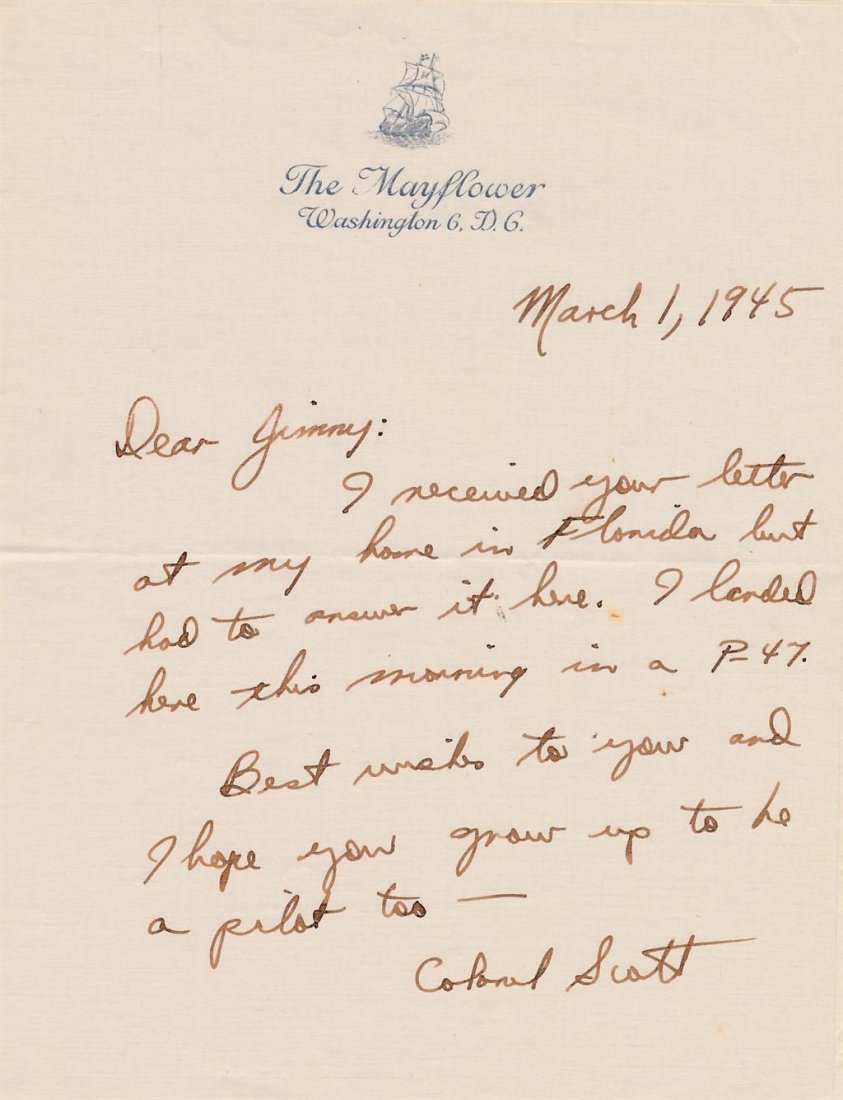 The Mayflower
Washington 6, D.C.
March 1, 1945
Dear Jimmy:
I received your letter
at my home in Florida but
had to answer it here. I landed
here this morning in a P-47.
Best wishes to you and
I hope you grow up to be
a pilot too —
Colonel Scott